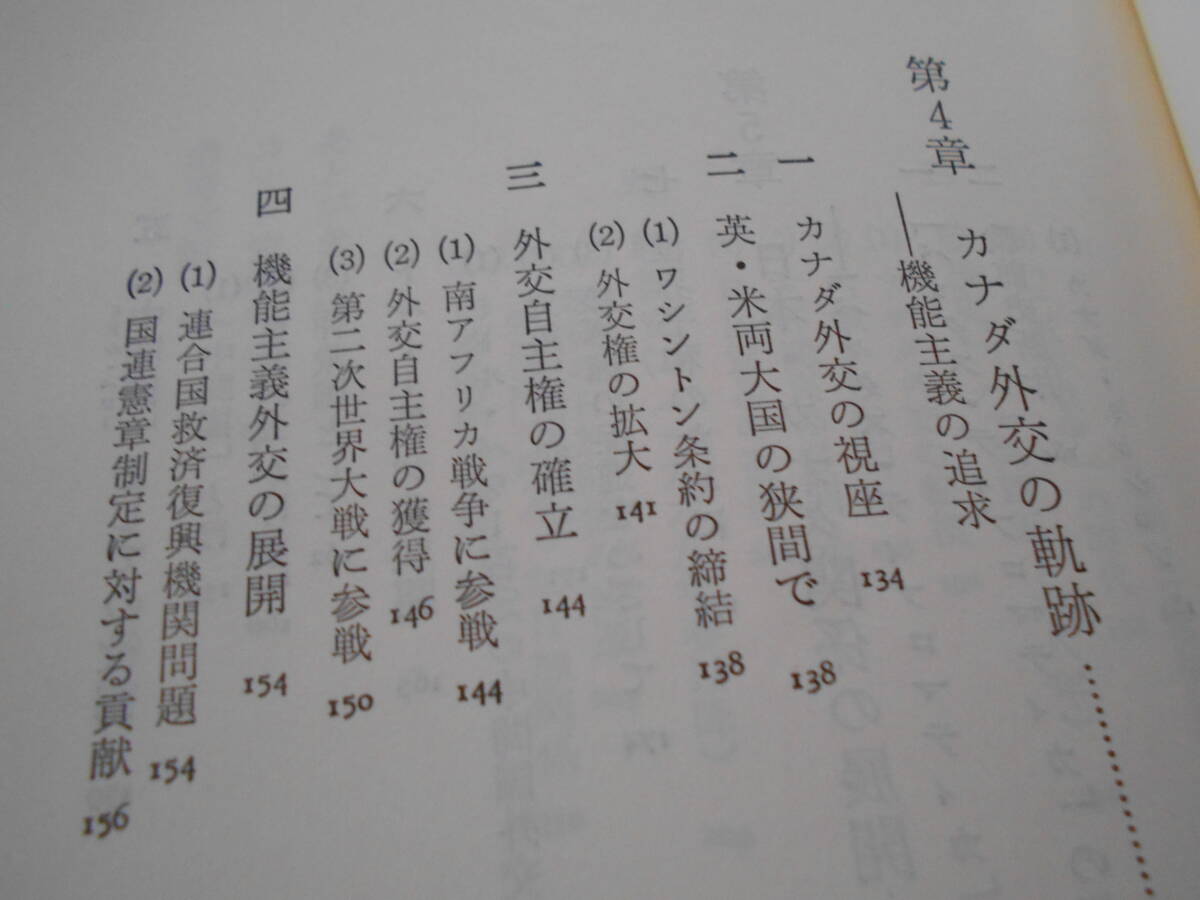 第4章 カナダ外交の軌跡……………
――機能主義の追求
一 カナダ外交の視座 134
二 英・米両大国の狭間で 138
(1) ワシントン条約の締結 138
(2) 外交権の拡大 141
三 外交自主権の確立 144
(1) 南アフリカ戦争に参戦 144
(2) 外交自主権の獲得 146
(3) 第二次世界大戦に参戦 150
四 機能主義外交の展開 154
(1) 連合国救済復興機関問題 154
(2) 国連憲章制定に対する貢献 156